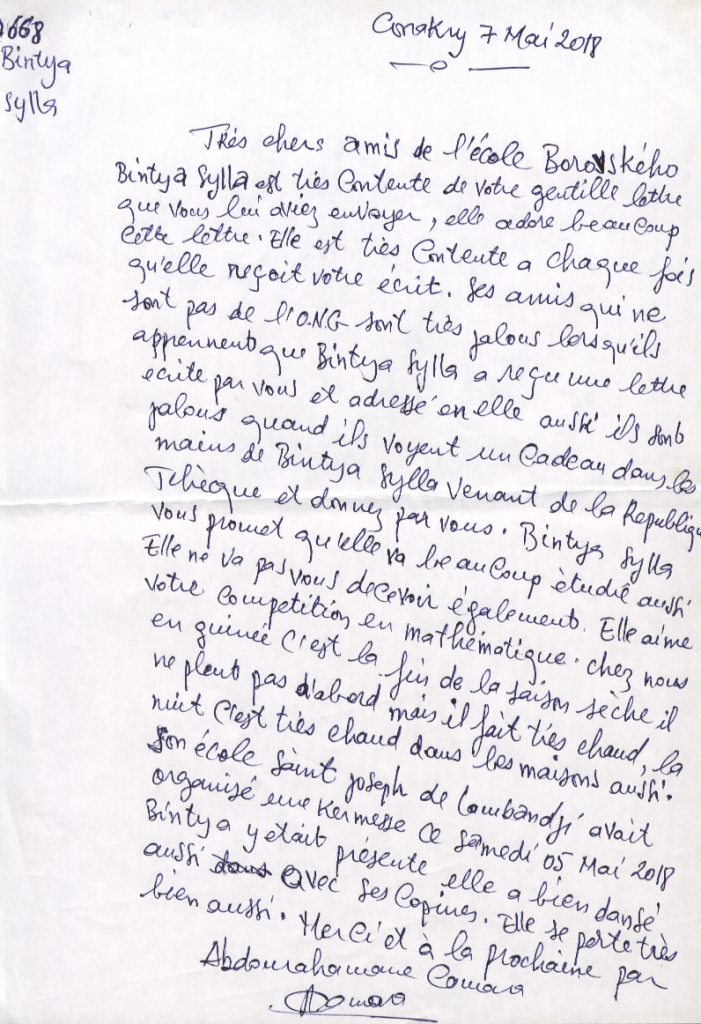 1668
Bintya
Sylla
Conakry 7 Mai 2018
Très chers amis de l'école Borovského
Bintya Sylla est très Contente de votre gentille lettre
que vous lui aviez envoyer, elle adore beaucoup
cette lettre. Elle est très Contente a chaque fois
qu'elle reçoit votre écrit. Ses amis qui ne
sont pas de l'O.N.G sont très jalous lorsqu'ils
apprennent que Bintya Sylla a reçu une lettre
écrite par vous et adressé en elle aussi ils sont
jalous quand ils voyent un Cadeau dans les
mains de Bintya Sylla Venant de la Republique
Tchècque et donnez par vous. Bintya Sylla
vous promet qu'elle va beaucoup ètudié aussi
Elle ne va pas vous decevoir également. Elle aime
votre Competition en mathématique. chez nous
en guinée C'est la fin de la saison sèche il
ne pleut pas d'abord mais il fait très chaud, la
nuit C'est très chaud dans les maisons aussi.
Son école Saint Joseph de Lambandji avait
organisé une Kermesse ce Samedi 05 Mai 2018
Bintya y etait présente elle a bien dansé
aussi avec ses Copines. Elle se porte très
bien aussi. Merci et à la prochaine par
Abdourahamane Camara